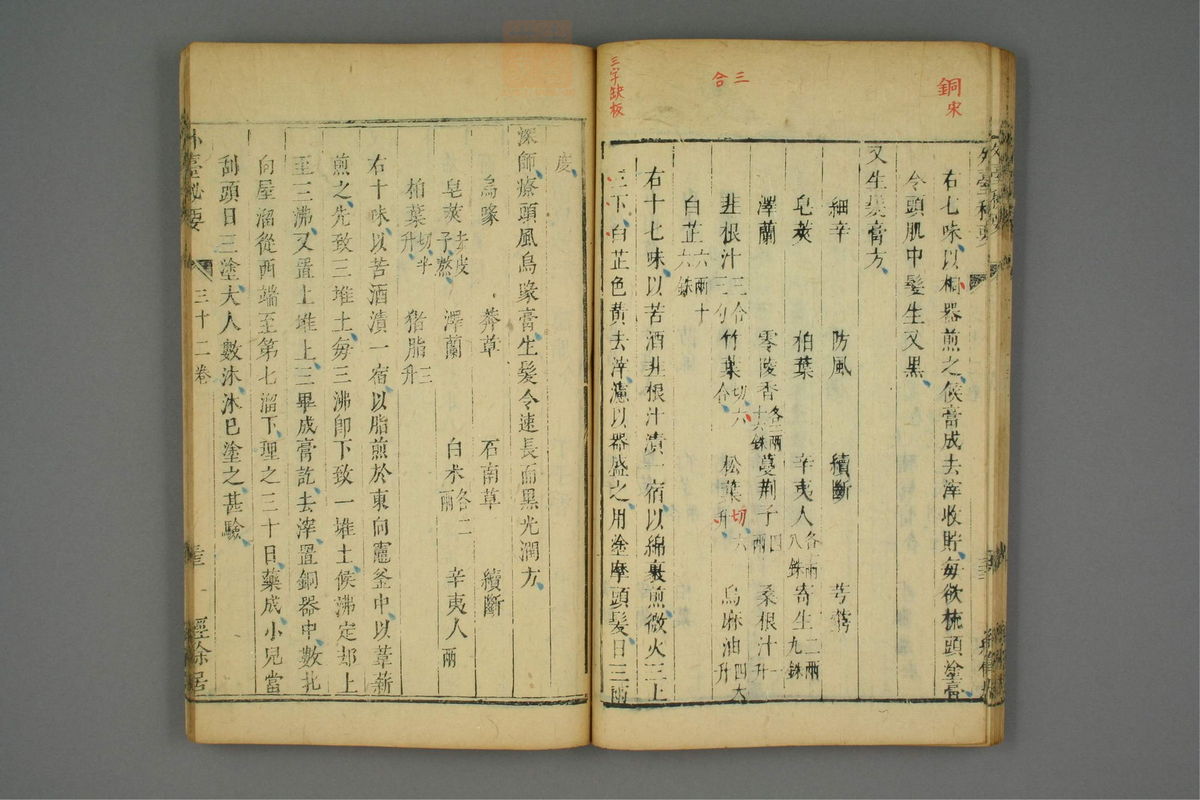 銅宋
三合
三字缺板
右七味以桐器煎之候膏成去滓收貯每欲梳頭塗膏
令頭肌中髮生又黑
又生髮膏方
細辛 防風 續斷 芎藭
皂莢 柏葉 辛夷人各一兩八銖 寄生二兩九銖
澤蘭 零陵香各二兩十六銖 蔓荆子四兩 桑根汁一升
韭根汁三合三勺 竹葉切六合 松葉切六升 烏麻油四大升
白芷六兩十六銖
右十七味以苦酒韭根汁漬一宿以綿裹煎微火三上
三下白芷色黄去滓濾以器盛之用塗摩頭髮日三兩
度
深師療頭風烏喙膏生髮令速長而黑光潤方
烏喙 莽草 石南草 續斷
皂莢去皮子熬 澤蘭 白术各二兩 辛夷人兩
柏葉切半升 猪脂三升
右十味以苦酒漬一宿以脂煎於東向竈釜中以葦薪
煎之先致三堆土每三沸卽下致一堆土候沸定却上
至三沸又置上堆上三畢成膏訖去滓置銅器中數北
向屋溜從西端至第七溜下理之三十日藥成小兒當
刮頭日三塗大人數沐沐已塗之甚驗
外臺秘要
三十二卷
經餘居